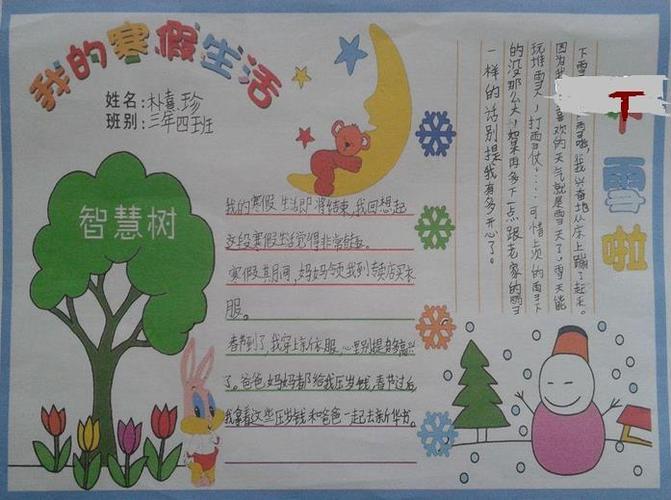 我的寒假生活
姓名:朴熹珍
班别:三年四班
智慧树
我的寒假生活即将结束,我回想起
这段寒假生活觉得非常
寒假其间,妈妈带我到专卖店买衣
服。
春节到了,我穿上新衣服,心里别提多高兴
了。爸爸,妈妈都给我压岁钱,春节过后
我拿着这些压岁钱和爸爸一起去新华书
下雪啦
我兴奋地从床上蹦了起来。
因为我喜欢的天气就是雪天了,雪天能
玩堆雪人,打雪仗,……可惜 的雪下
的没那么大,如果再多下一点跟老家的
一样的话别提我有多开心了。